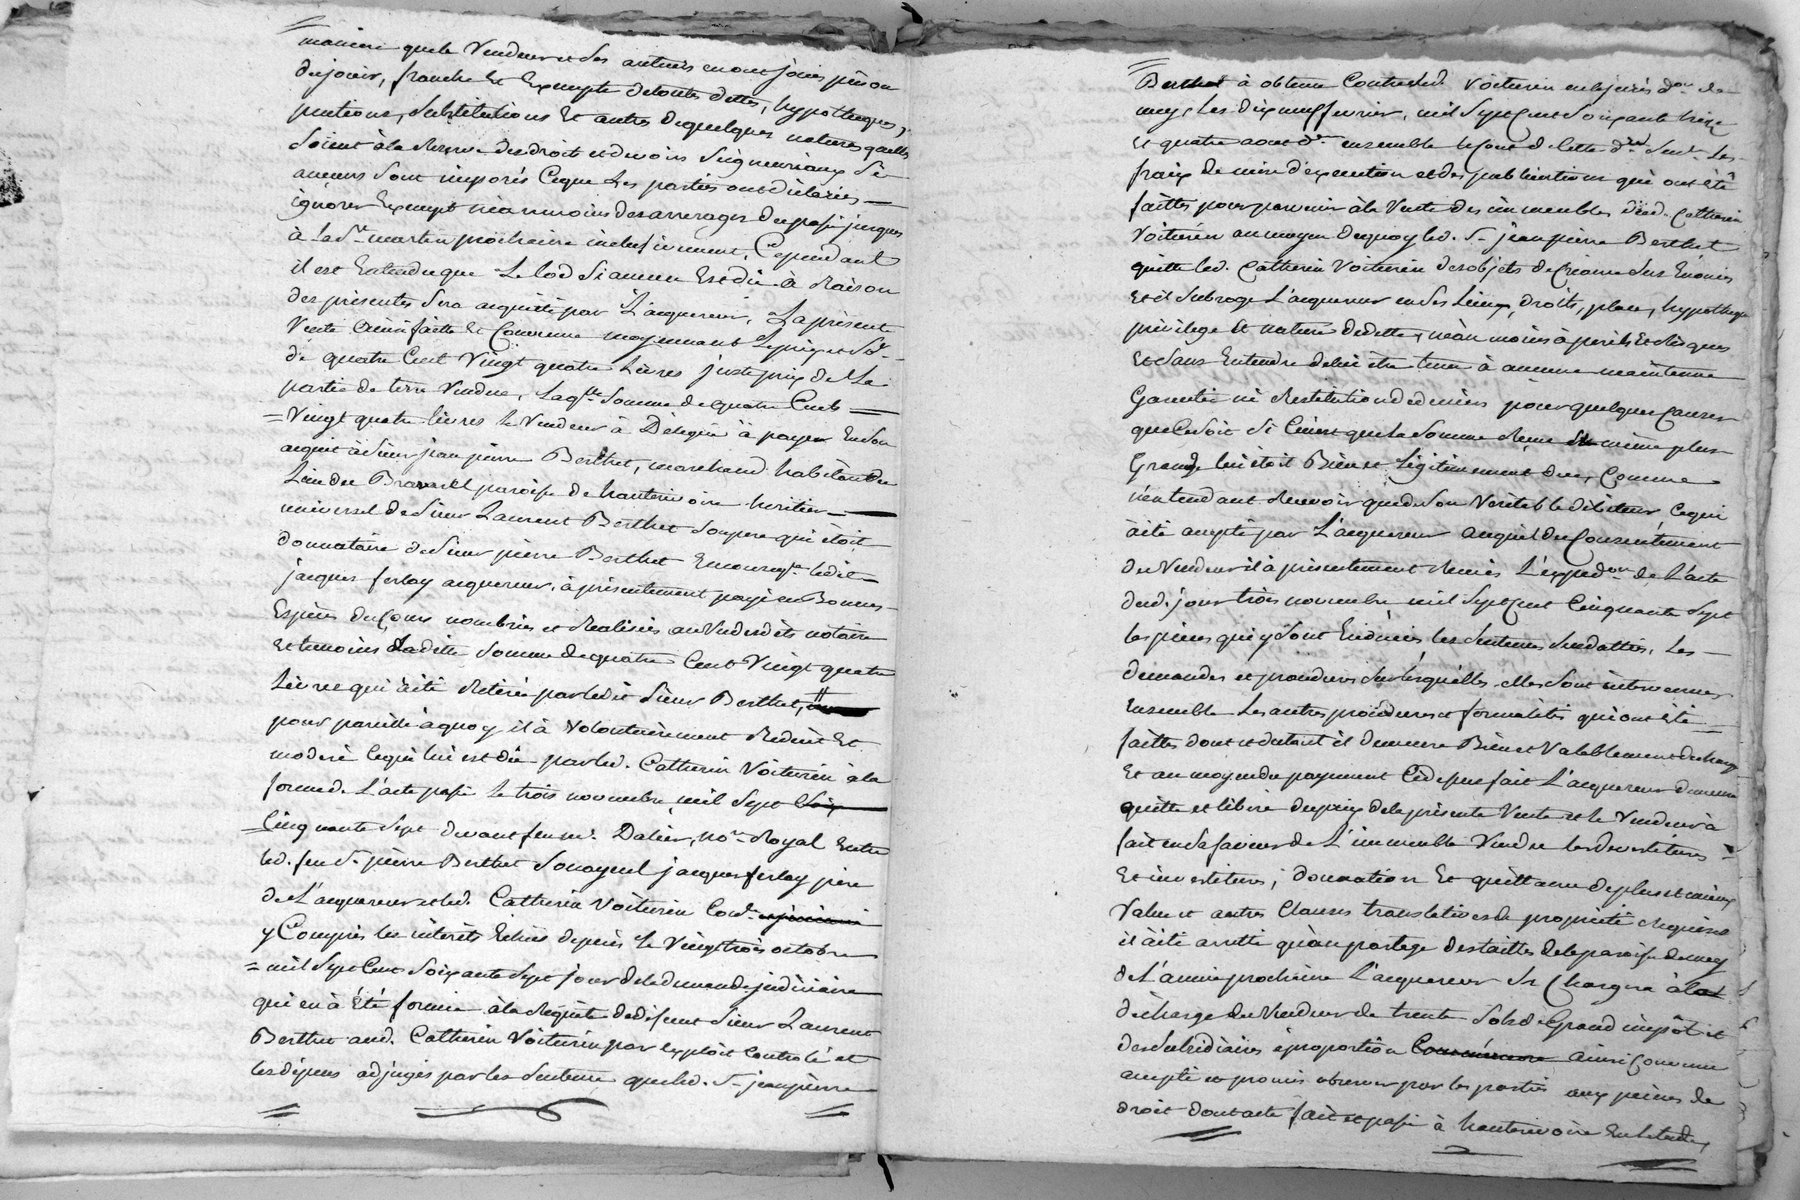 maniere que le Vendeur et ses auteurs en ont jouis pu ou
du jouir, franche Et Exempte de toutes dettes, hypotheques,
pentions, substitutions Et autres de quelques natures quelles
soient à la Reserve des droit et devoirs seigneuriaux si
aucuns sont imposés Ceque Les parties ont déclarées
ignorer Exempt néanmoins des arrerages du passé jusques
à la St martin prochaine inclusivement, Cependant
il est Entendu que Le lod si aucun Est dû à Raison
des présentes sera acquitté par L'acquereur, La présente
Vente ainsi faitte Et Convenue moyennant Le prix et
de quatre Cent Vingt quatre Livres juste prix de la
partie de terre Vendue, Laqlle somme de quatre Cent
Vingt quatre livres le Vendeur à Délégué à payer En son
acquit à sieur jean pierre Berthet, marchand habitant du
Lieu du paroisse de hauterivoire héritier
universel de sieur Laurent Berthet son pere qui étoit
donnataire de sieur pierre Berthet ledit
jacques ferlay acquereur, à présentement payé en Bonnes
Espèces du Cours nombrées et Realisées au Vu desdits notaire
et temoins Laditte somme de quatre Cent Vingt quatre
Livres qui à été Retirée par ledit sieur Berthet,
pour pareille à quoy il à Volontairement Reduit Et
moderé Ce qui lui est dû par led. Catherin Voiturin à la
forme de L'acte passé Le trois novembre mil sept
Cinquante sept devant feu me. Dalier, nore Royal Entre
led. feu sr. pierre Berthet son ayeul jacques ferlay pere
de L'acquereur et led. Catherin Voiturin
y Compris les intérêts Echus depuis Le Vingt trois octobre
mil sept Cent soixante sept jour de la demande judiciaire
qui en à Eté formée à la Requête dudit feu sieur Laurent
Berthet aud. Catherin Voiturin par exploit Controlé et
les dépens adjugés par les sentence que led. sr jean pierre
Berthet à obtenu Contre led Voiturin
mey, Les dix neuf fevrier, mil sept Cent soixante treize
et quatre aout dr ensemble Les
fraix de mise d'execution et des publications qui ont été
faittes pour parvenir à la Vente des immeubles dud. Catherin
Voiturin au moyen de quoy led. sr jean pierre Berthet
quitte led. Catherin Voiturin des objets de Créance sus Enoncés
et il subroge L'acquereur en ses Lieux, droits, place, hypotheque
privilege et nature de dette, néanmoins à perils et Risques
et sans Entendre de lui être tenu à aucune maintenue
Garantie ni Restitution de deniers pour quelque Cause
que Ce soit si Ce n'est que la somme Reçue même plus
Grande lui étoit Bien et Légitimement due, Comme
n'entendant Recevoir que de son Veritable débiteur Ce qui
à été accepté par L'acquereur auquel du Consentement
du Vendeur il à présentement Remis L'expedon de L'acte
dud. jour trois novembre mil sept Cent Cinquante sept
les pieces qui y sont Enoncées les sentences susdattées, Les
demandes et procedures sur lesquelles elles sont intervenues
Ensemble Les autres procédures et formalités qui ont été
faittes dont et du tout il demeure Bien et Valablement dechargé
Et au moyen du payement Ci dessus fait L'acquereur demeure
quitte et libéré du prix de la présente Vente et le Vendeur à
fait en sa faveur de L'immeuble Vendu les devestitures
Et investitures, donnation Et quittance de plus et mieux
Value et autres Clauses translatives de propriété Requises
il à été arretté qu'au partage des tailles de la paroisse de mey
de L'année prochaine L'acquereur se Chargera à la
décharge du Vendeur de trente sols de Grand impôt et
des subsidiaires à proportion ainsi Convenu
accepté et promis observer par les parties aux peines de
droit dont acte fait et passé à hauterivoire En L'étude